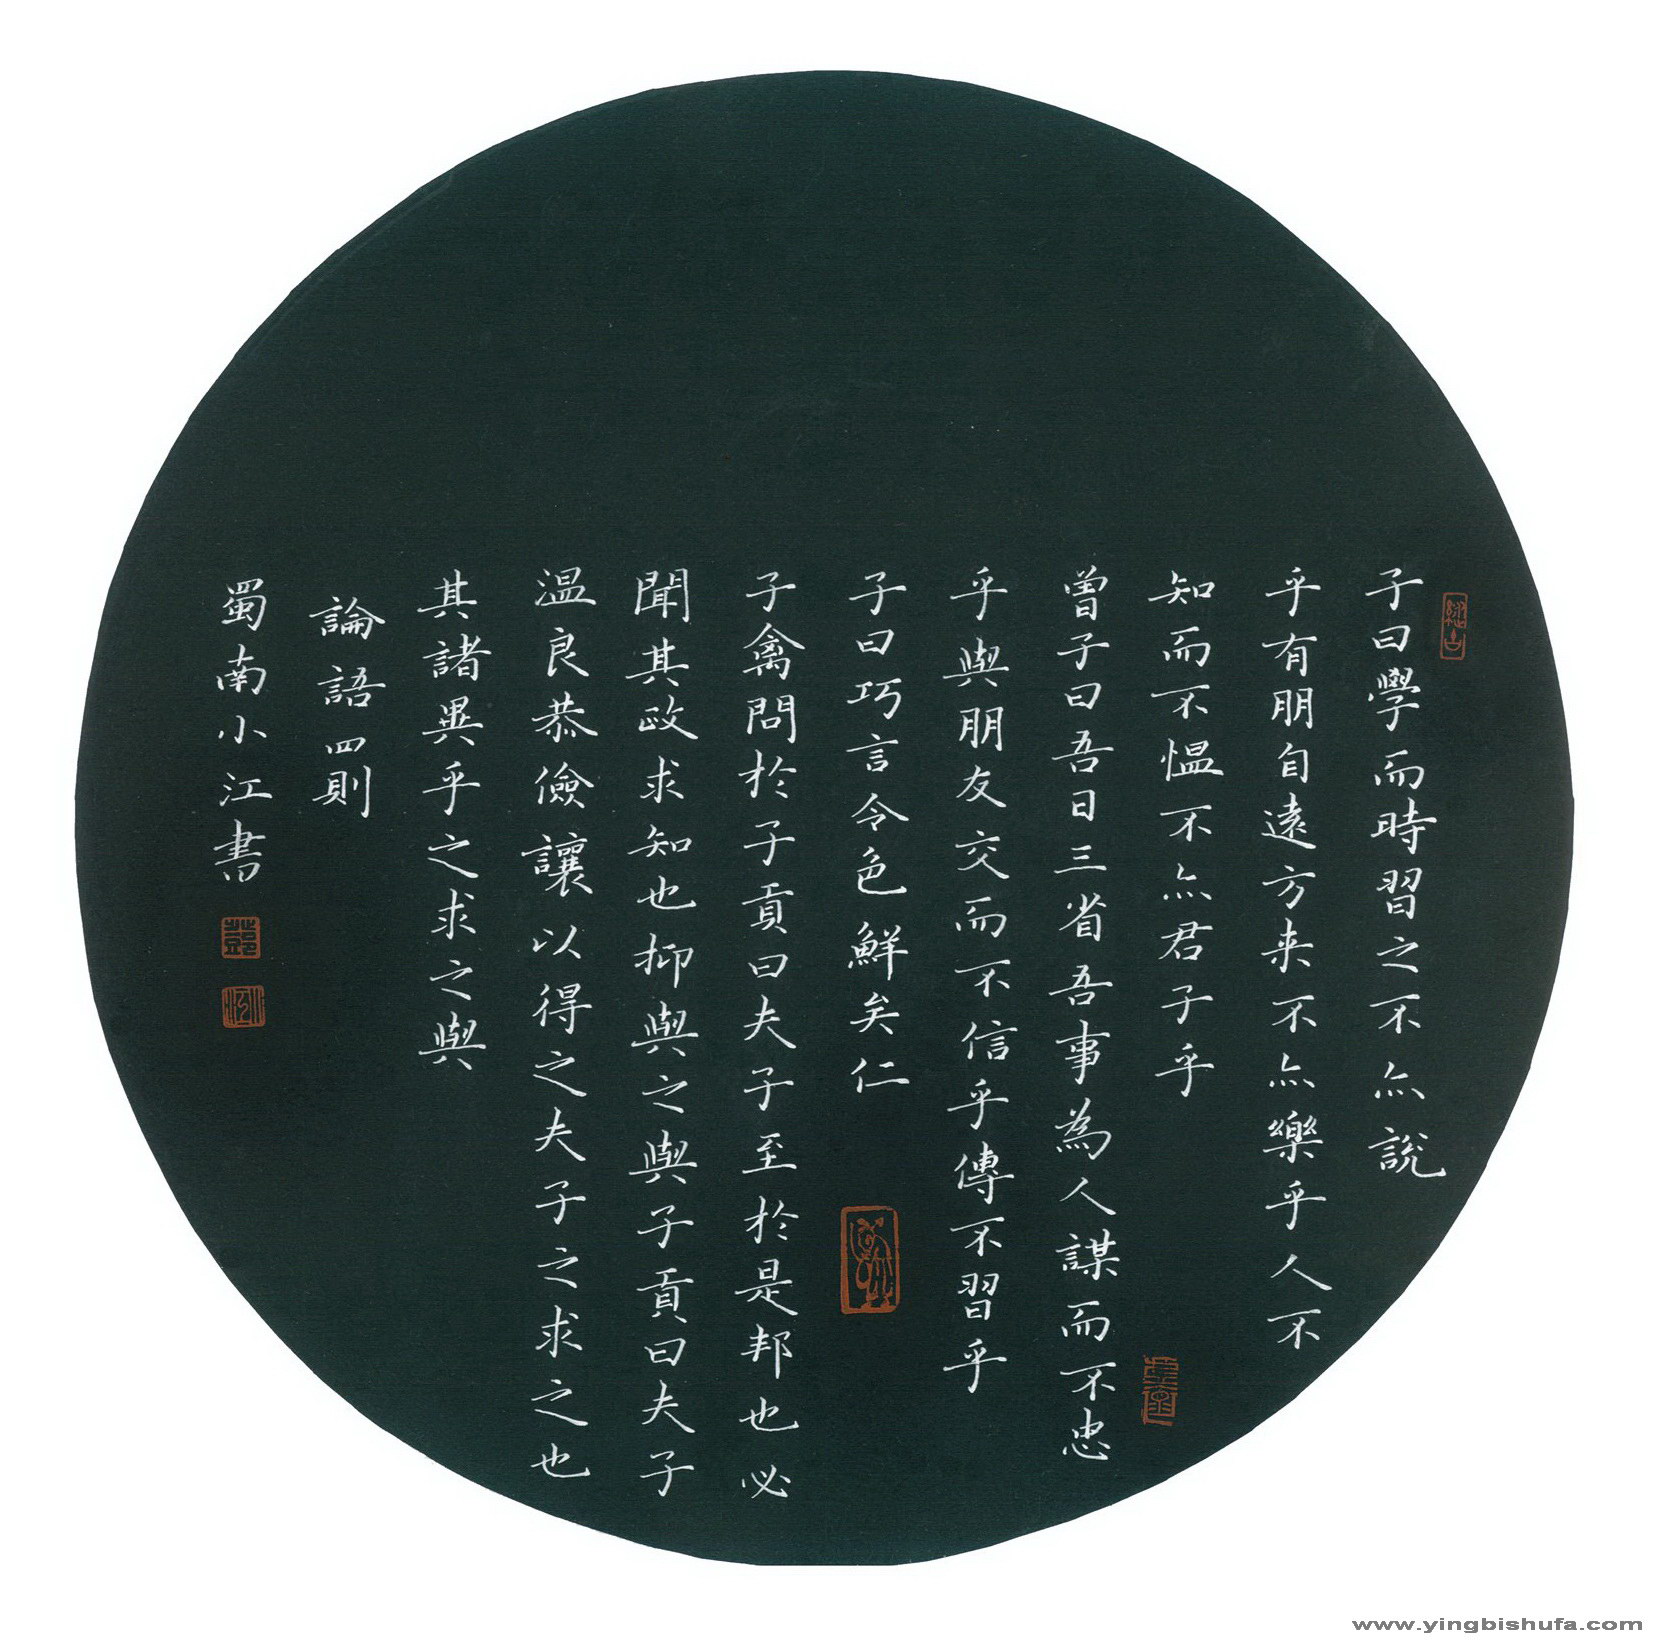 子曰學而時習之不亦說
乎有朋自遠方来不亦樂乎人不
知而不愠不亦君子乎
曾子曰吾日三省吾事為人謀而不忠
乎與朋友交而不信乎傳不習乎
子曰巧言令色鮮矣仁
子禽問於子貢曰夫子至於是邦也必
聞其政求知也抑與之與子貢曰夫子
温良恭儉讓以得之夫子之求之也
其諸異乎之求之與
論語四則
蜀南小江書
www.yingbishufa.com